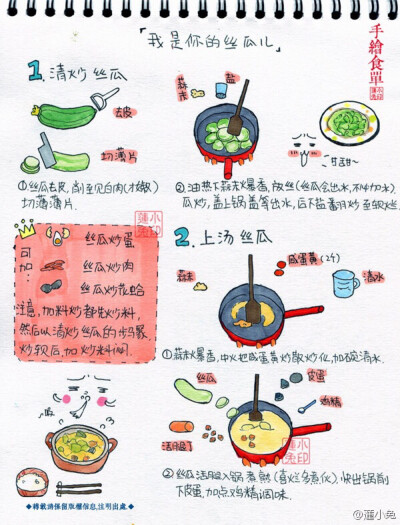 「我是你的丝瓜儿」
手繪食單
1. 清炒丝瓜
去皮
切薄片
①丝瓜去皮,削至见白肉(才嫩)
切薄薄片.
蒜末
盐
甘甜~
②油热下蒜末爆香,放丝(丝瓜会出水,不必加水).
瓜炒,盖上锅盖等出水,后下盐翻炒至软烂.
可加:
丝瓜炒蛋
丝瓜炒肉
丝瓜炒花蛤
注意,加料炒都先炒料,
然后以清炒丝瓜的步骤,
炒软后,加炒料同.
2. 上汤丝瓜
蒜末
咸蛋黄(2个)
清水
①蒜末爆香,中火把咸蛋黄炒散炒化,加碗清水.
丝瓜
皮蛋
鸡精
②丝瓜 入锅煮熟(喜烂多煮化),快出锅前
下皮蛋,加点鸡精调味.
◆轉載請保留版權信息,注明出處◆
@蓮小兔